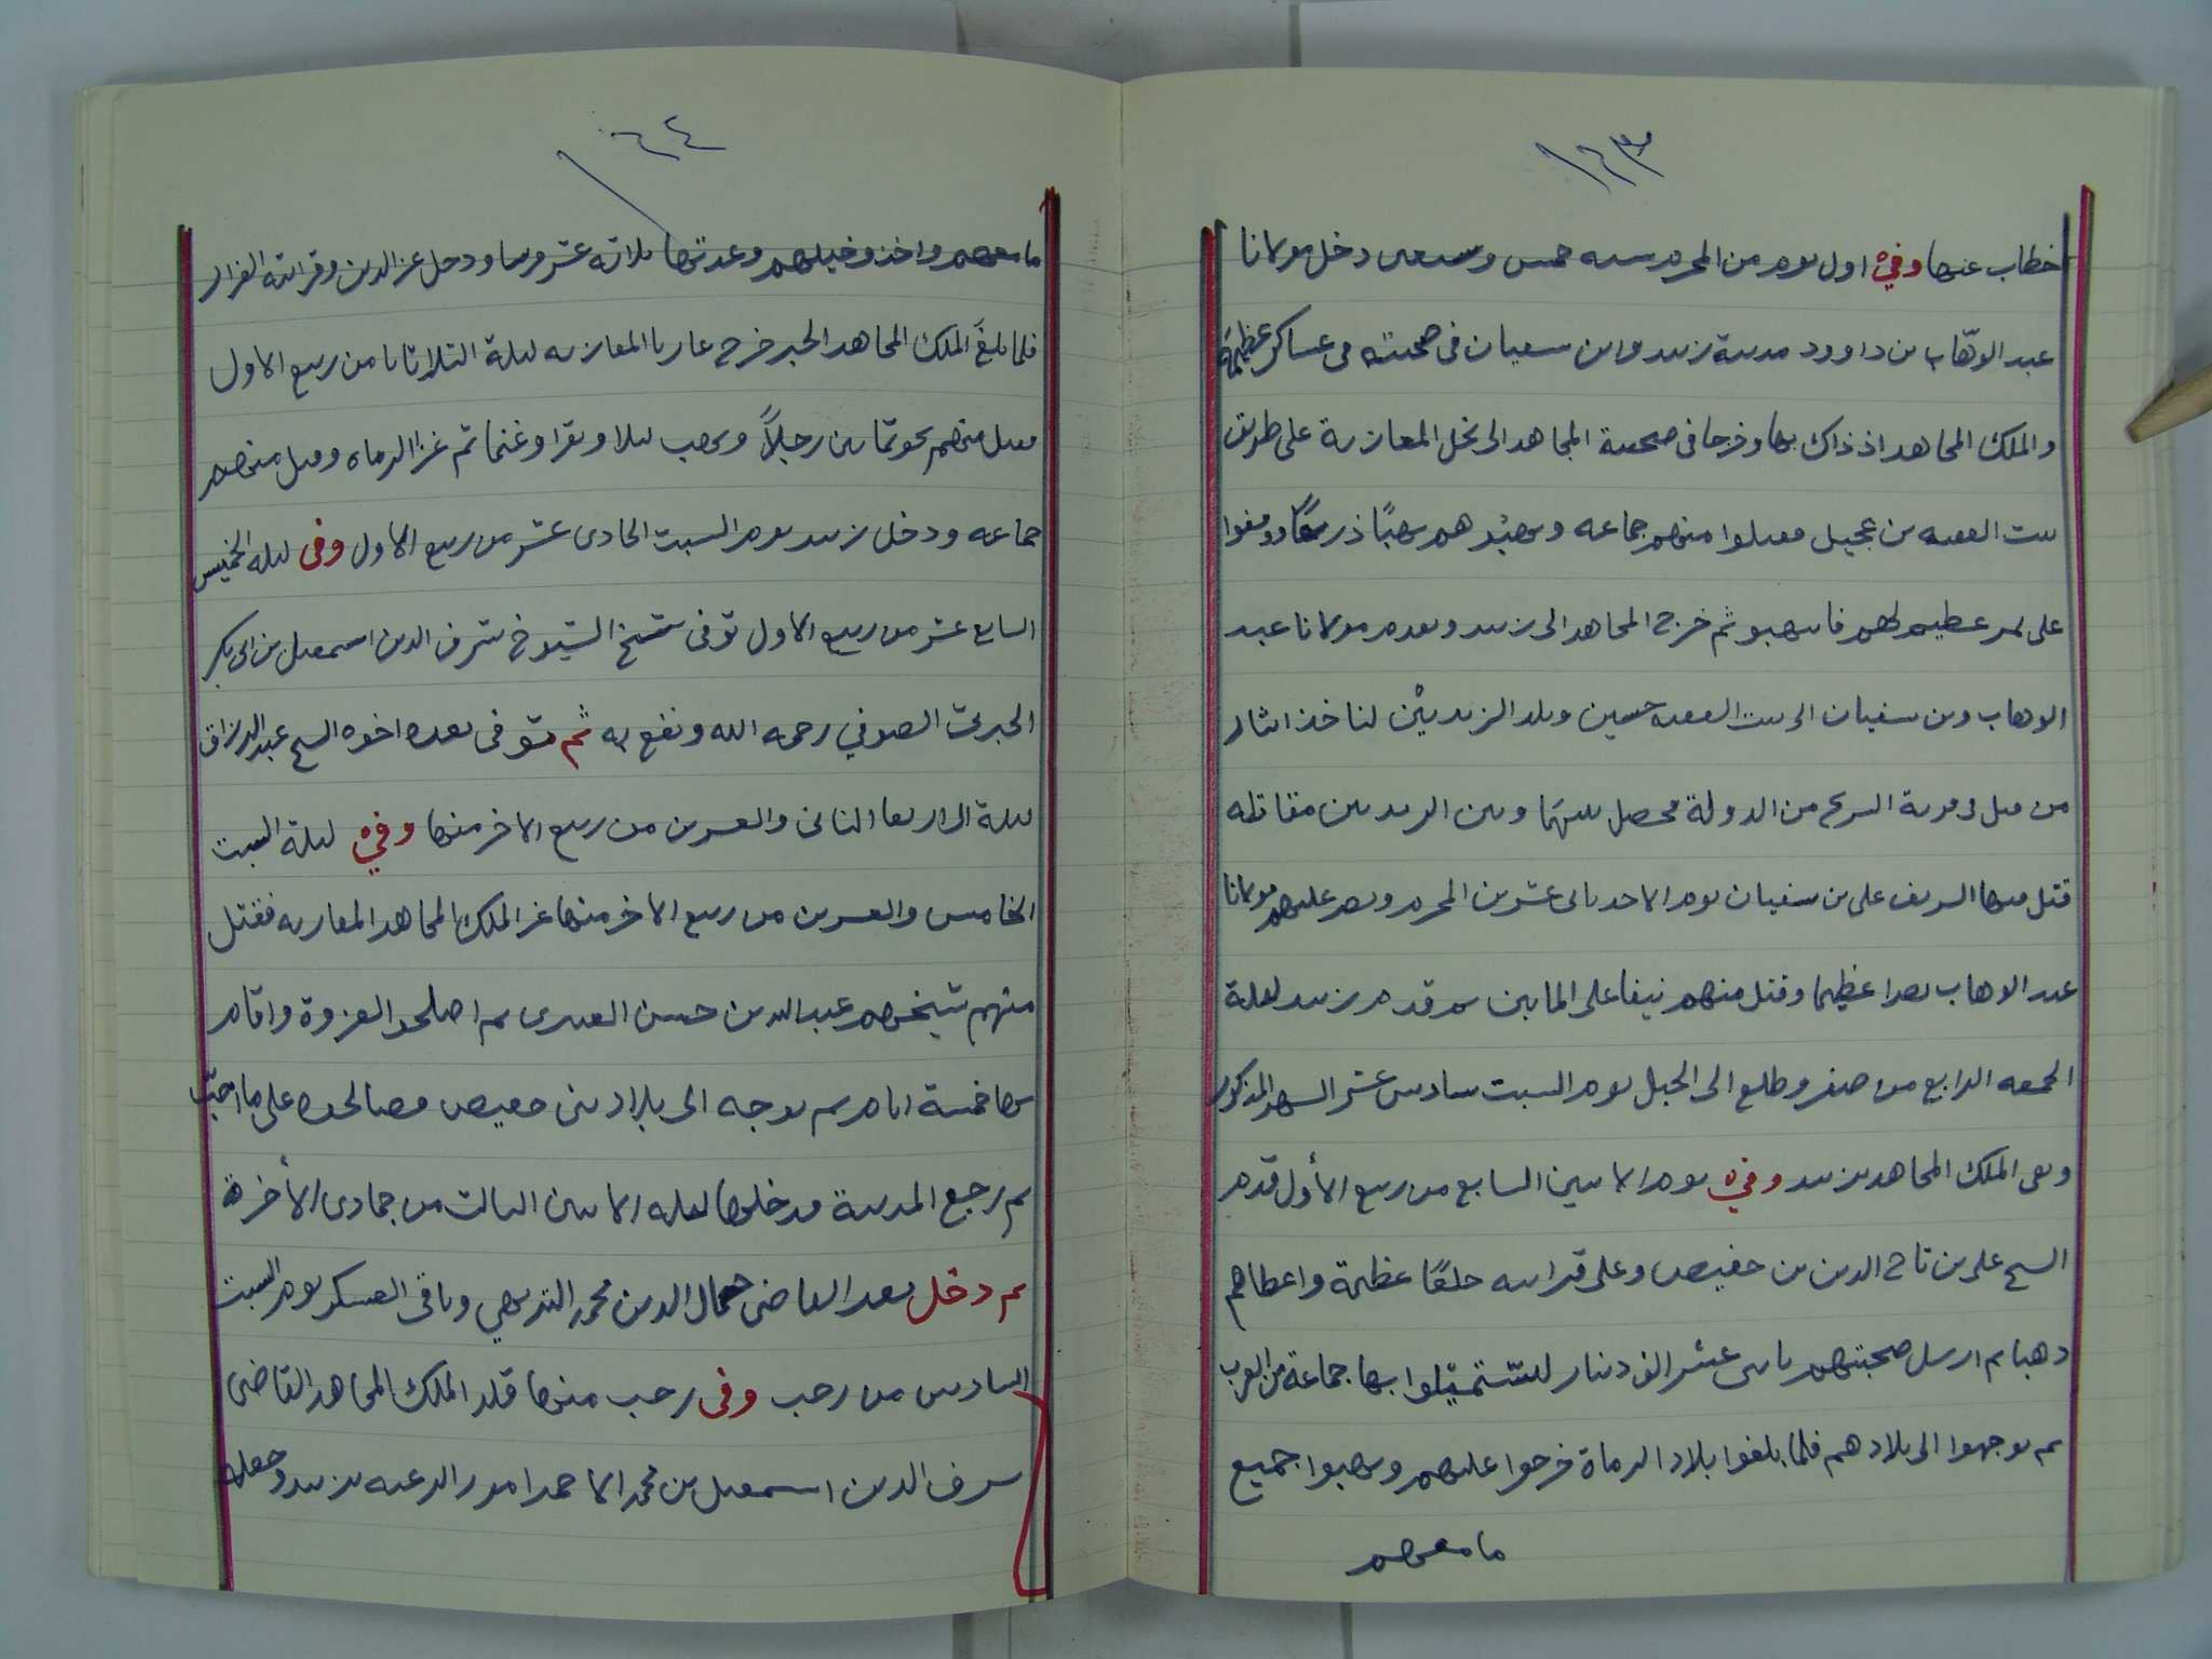 ١٦٣
خطاب عنها وفي اول يوم من المحرم سنه خمس وسبعين دخل مولانا
عبد الوهّاب بن داوود مدينة زبيد وابن سفيان في صحبته في عساكر عظيمة
والملك المجاهد اذ ذاك بها وخرجا في صحبة المجاهد الى نخل المعازبة على طريق
بيت الفقيه بن عجيل فقتلوا منهم جماعه ونهبوهم نهبًا ذريعًا ووقفوا
على تمر عظيم لهم فانتهبو ثم خرج المجاهد الى زبيد وتقدم مولانا عبد
الوهاب وبن سفيان الى بيت الفقيه حسين وبلد الزيديين لناخذ اثار
من قتل في قرية السرح من الدولة فحصل بينهما وبين الزيديين مقاتله
قتل فيها الشريف علي بن سفيان يوم الاحد ثاني عشرين المحرم ونصر عليهم مولانا
عبد الوهاب نصرا عظيما وقتل منهم نيفا على المايين ثم قدم زبيد ليلة
الجمعه الرابع من صفر وطلع الى الجبل يوم السبت سادس عشر الشهر المذكور
وبقي الملك المجاهد بزبيد وفي يوم الاثنين السابع من ربيع الأول قدم
الشيخ علي بن تاج الدين بن حفيص وعلى قرابته حلعًا عظيمة واعطاهم
دهبا ثم ارسل صحبتهم باثني عشر الف دينار للستميلوا بها جماعة من العرب
ثم توجهوا الى بلادهم فلما بلغوا بلاد الرماة خرجوا عليهم ونهبوا جميع
ما معهم
١٦٤
ما معهم واخذو خيلهم وعدتها ثلاثه عشر فرسا ودخل عز الدين وقرابته الفزار
فلما بلغَ الملك المجاهد الخبر خرج غازيا المعازبه ليلة الثلاثا ثامن ربيع الاول
فقتل منهم نحو ثمانين رجلاً ونهب ابلا وبقرا وغنما ثم غزا الرماه وقتل منهم
جماعه ودخل زبيد يوم السبت الحادى عشر من ربيع الاول وفى ليله الخميس
السابع عشر من ربيع الاول توفى شيخ الشيوخ شرف الدين اسمعيل بن ابى بكر
الجبرتى الصوفي رحمه الله ونفع به ثم توفى بعده اخوه الشيخ عبد الرزاق
ليلة الاربعا الثانى والعشرين من ربيع الاخر منها وفي ليلة السبت
الخامس والعشرين من ربيع الاخر منها غزا الملك المجاهد المعازبه فقتل
منهم شيخهم عبد الله بن حسن العبدى ثم اصلحوا الغزوة واقام
بها خمسة ايام ثم توجه الى بلاد بنى حفيص فصالحوه على ما احبّ
ثم رجع المدينة فدخلها ليله الاثنين الثالث من جمادى الأخرة
ثم دخل بعد القاضى جمال الدين محمد التريهي وباقى العسكر يوم السبت
السادس من رجب وفى رجب منها قلد الملك المجاهد القاضى
شرف الدين اسمعيل بن محمد الاحمر امور الرعيه بزبيد وجعله